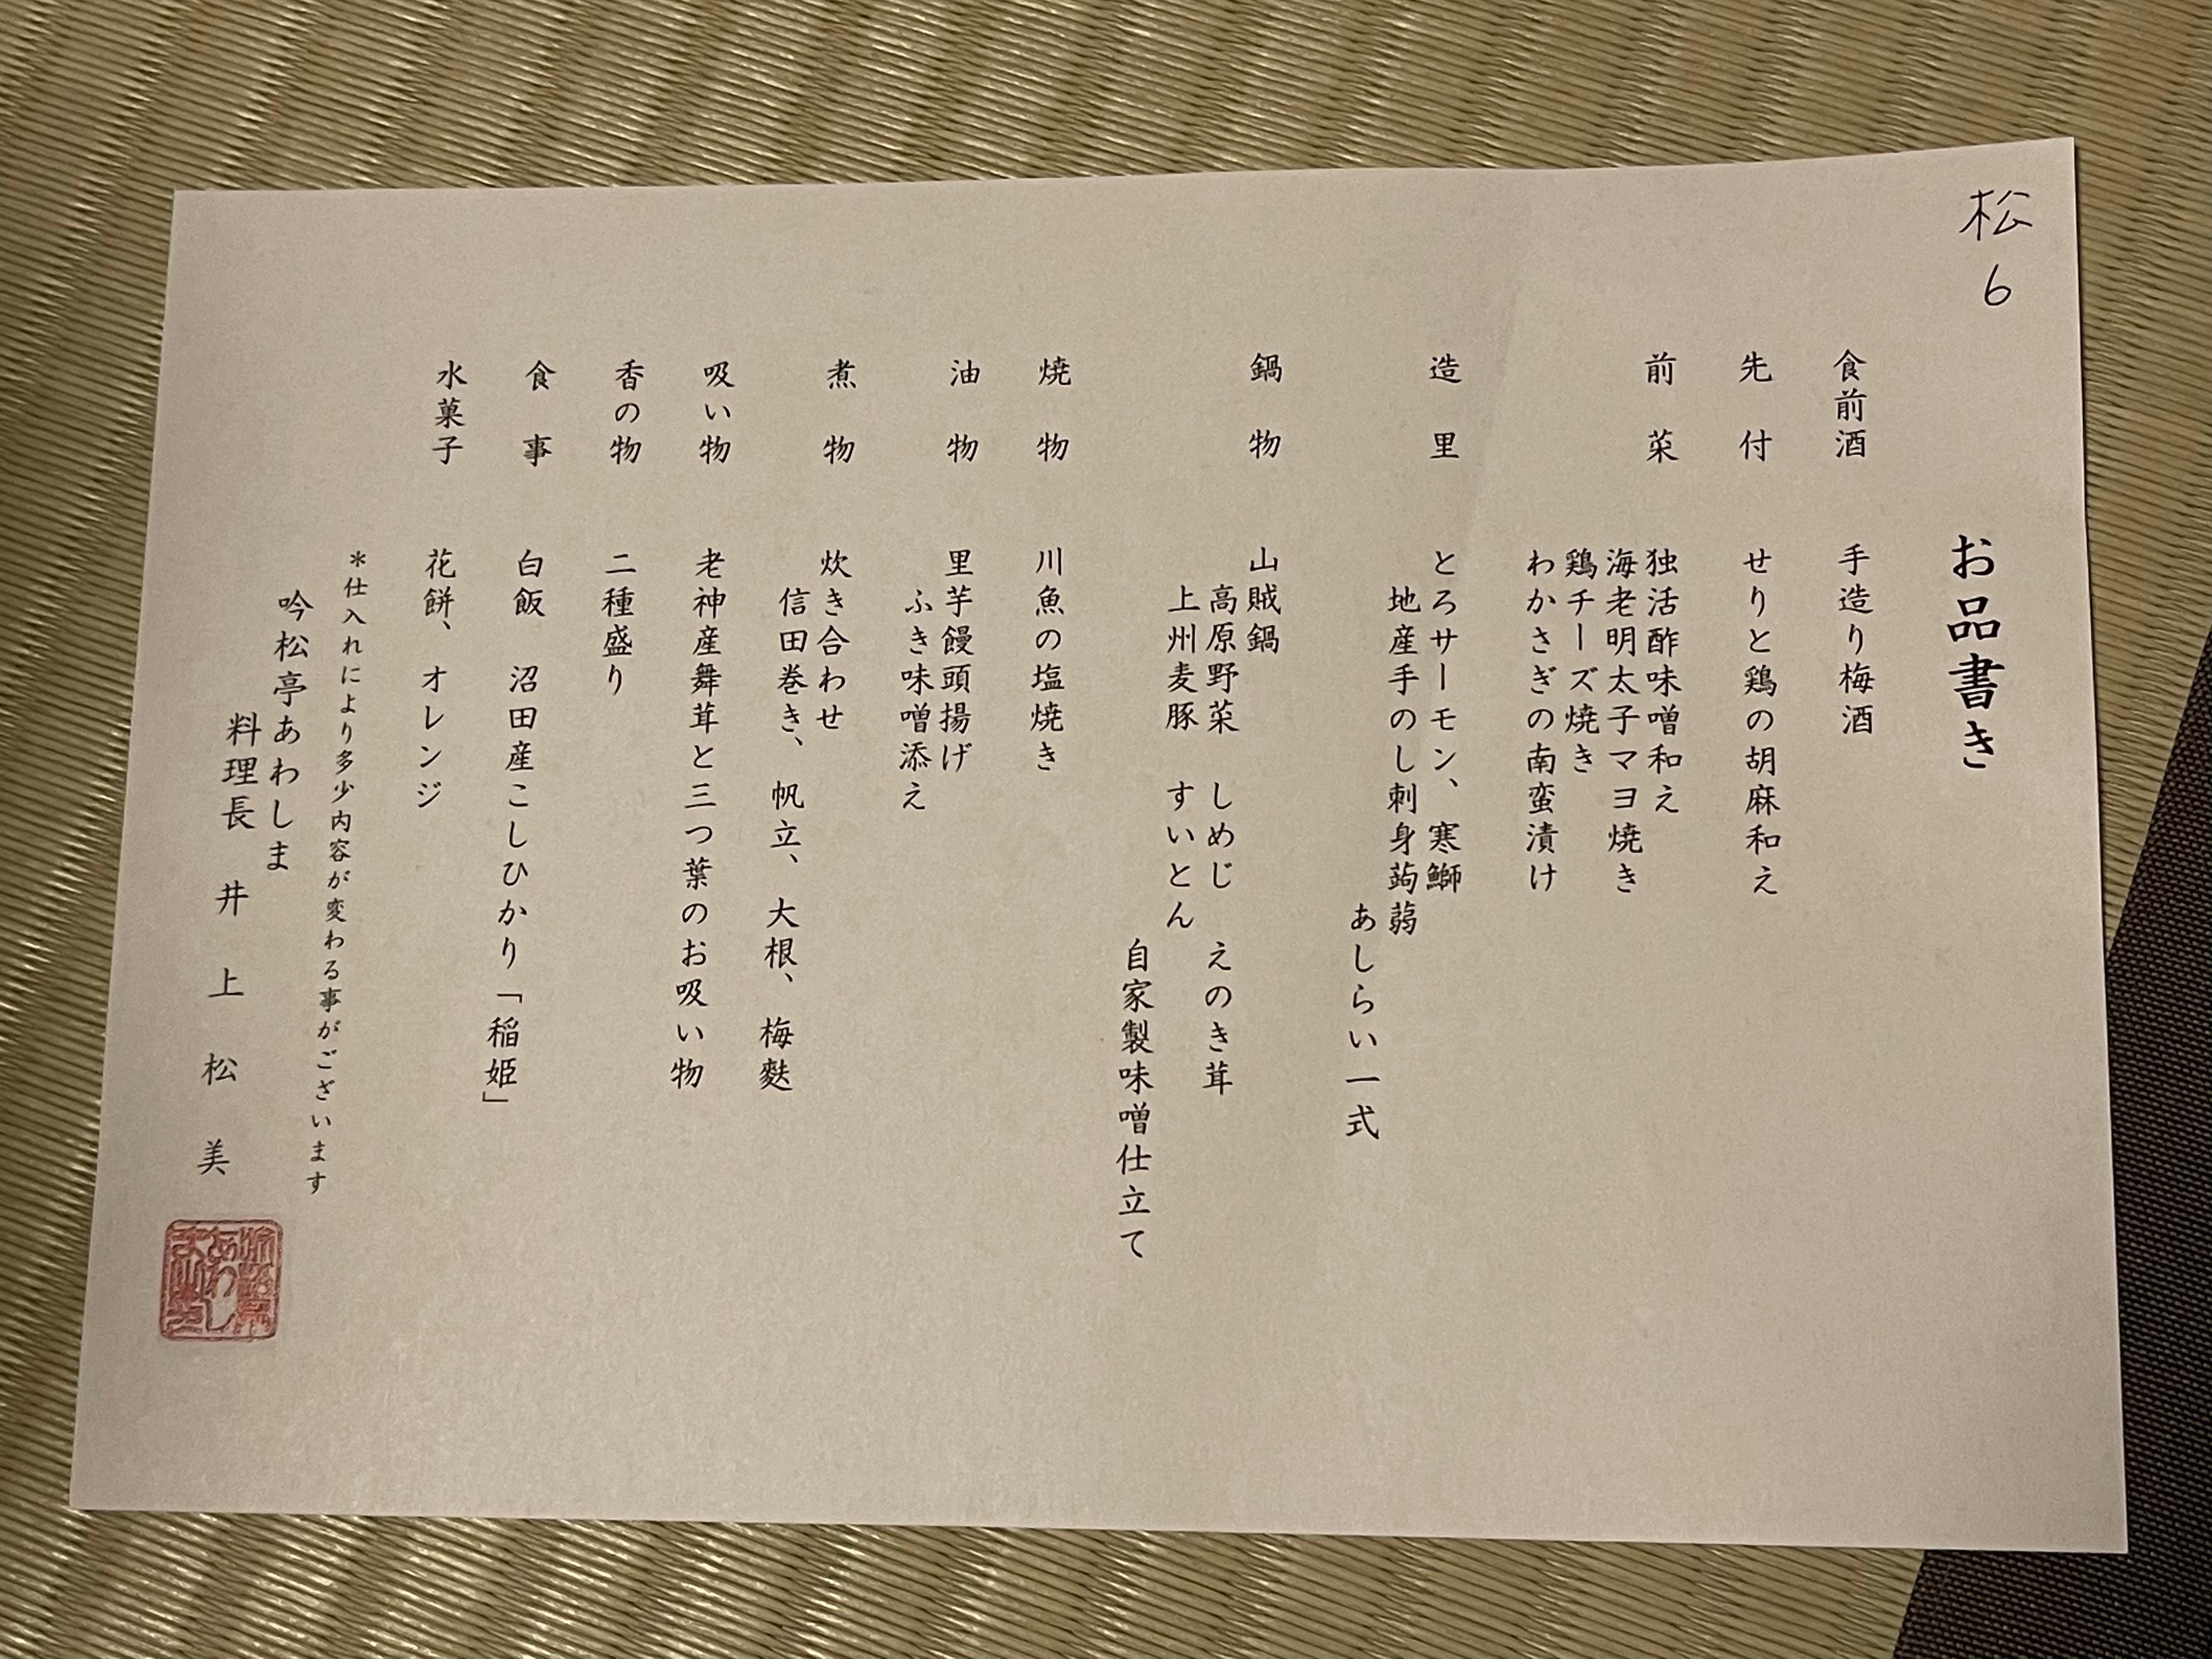 松
6
お品書き
食前酒 手造り梅酒
先付 せりと鶏の胡麻和え
前菜 独活酢味噌和え
海老明太子マヨ焼き
鶏チーズ焼き
わかさぎの南蛮漬け
造里 とろサーモン、寒鰤
地産手のし刺身蒟蒻
あしらい一式
鍋物 山賊鍋
高原野菜 しめじ えのき茸
上州麦豚 すいとん
自家製味噌仕立て
焼物 川魚の塩焼き
油物 里芋饅頭揚げ
ふき味噌添え
煮物 炊き合わせ
信田巻き、帆立、大根、梅麩
吸い物 老神産舞茸と三つ葉のお吸い物
香の物 二種盛り
食事 白飯 沼田産こしひかり「稲姫」
水菓子 花餅、オレンジ
＊仕入れにより多少内容が変わる事がございます
吟松亭あわしま
料理長 井上松美